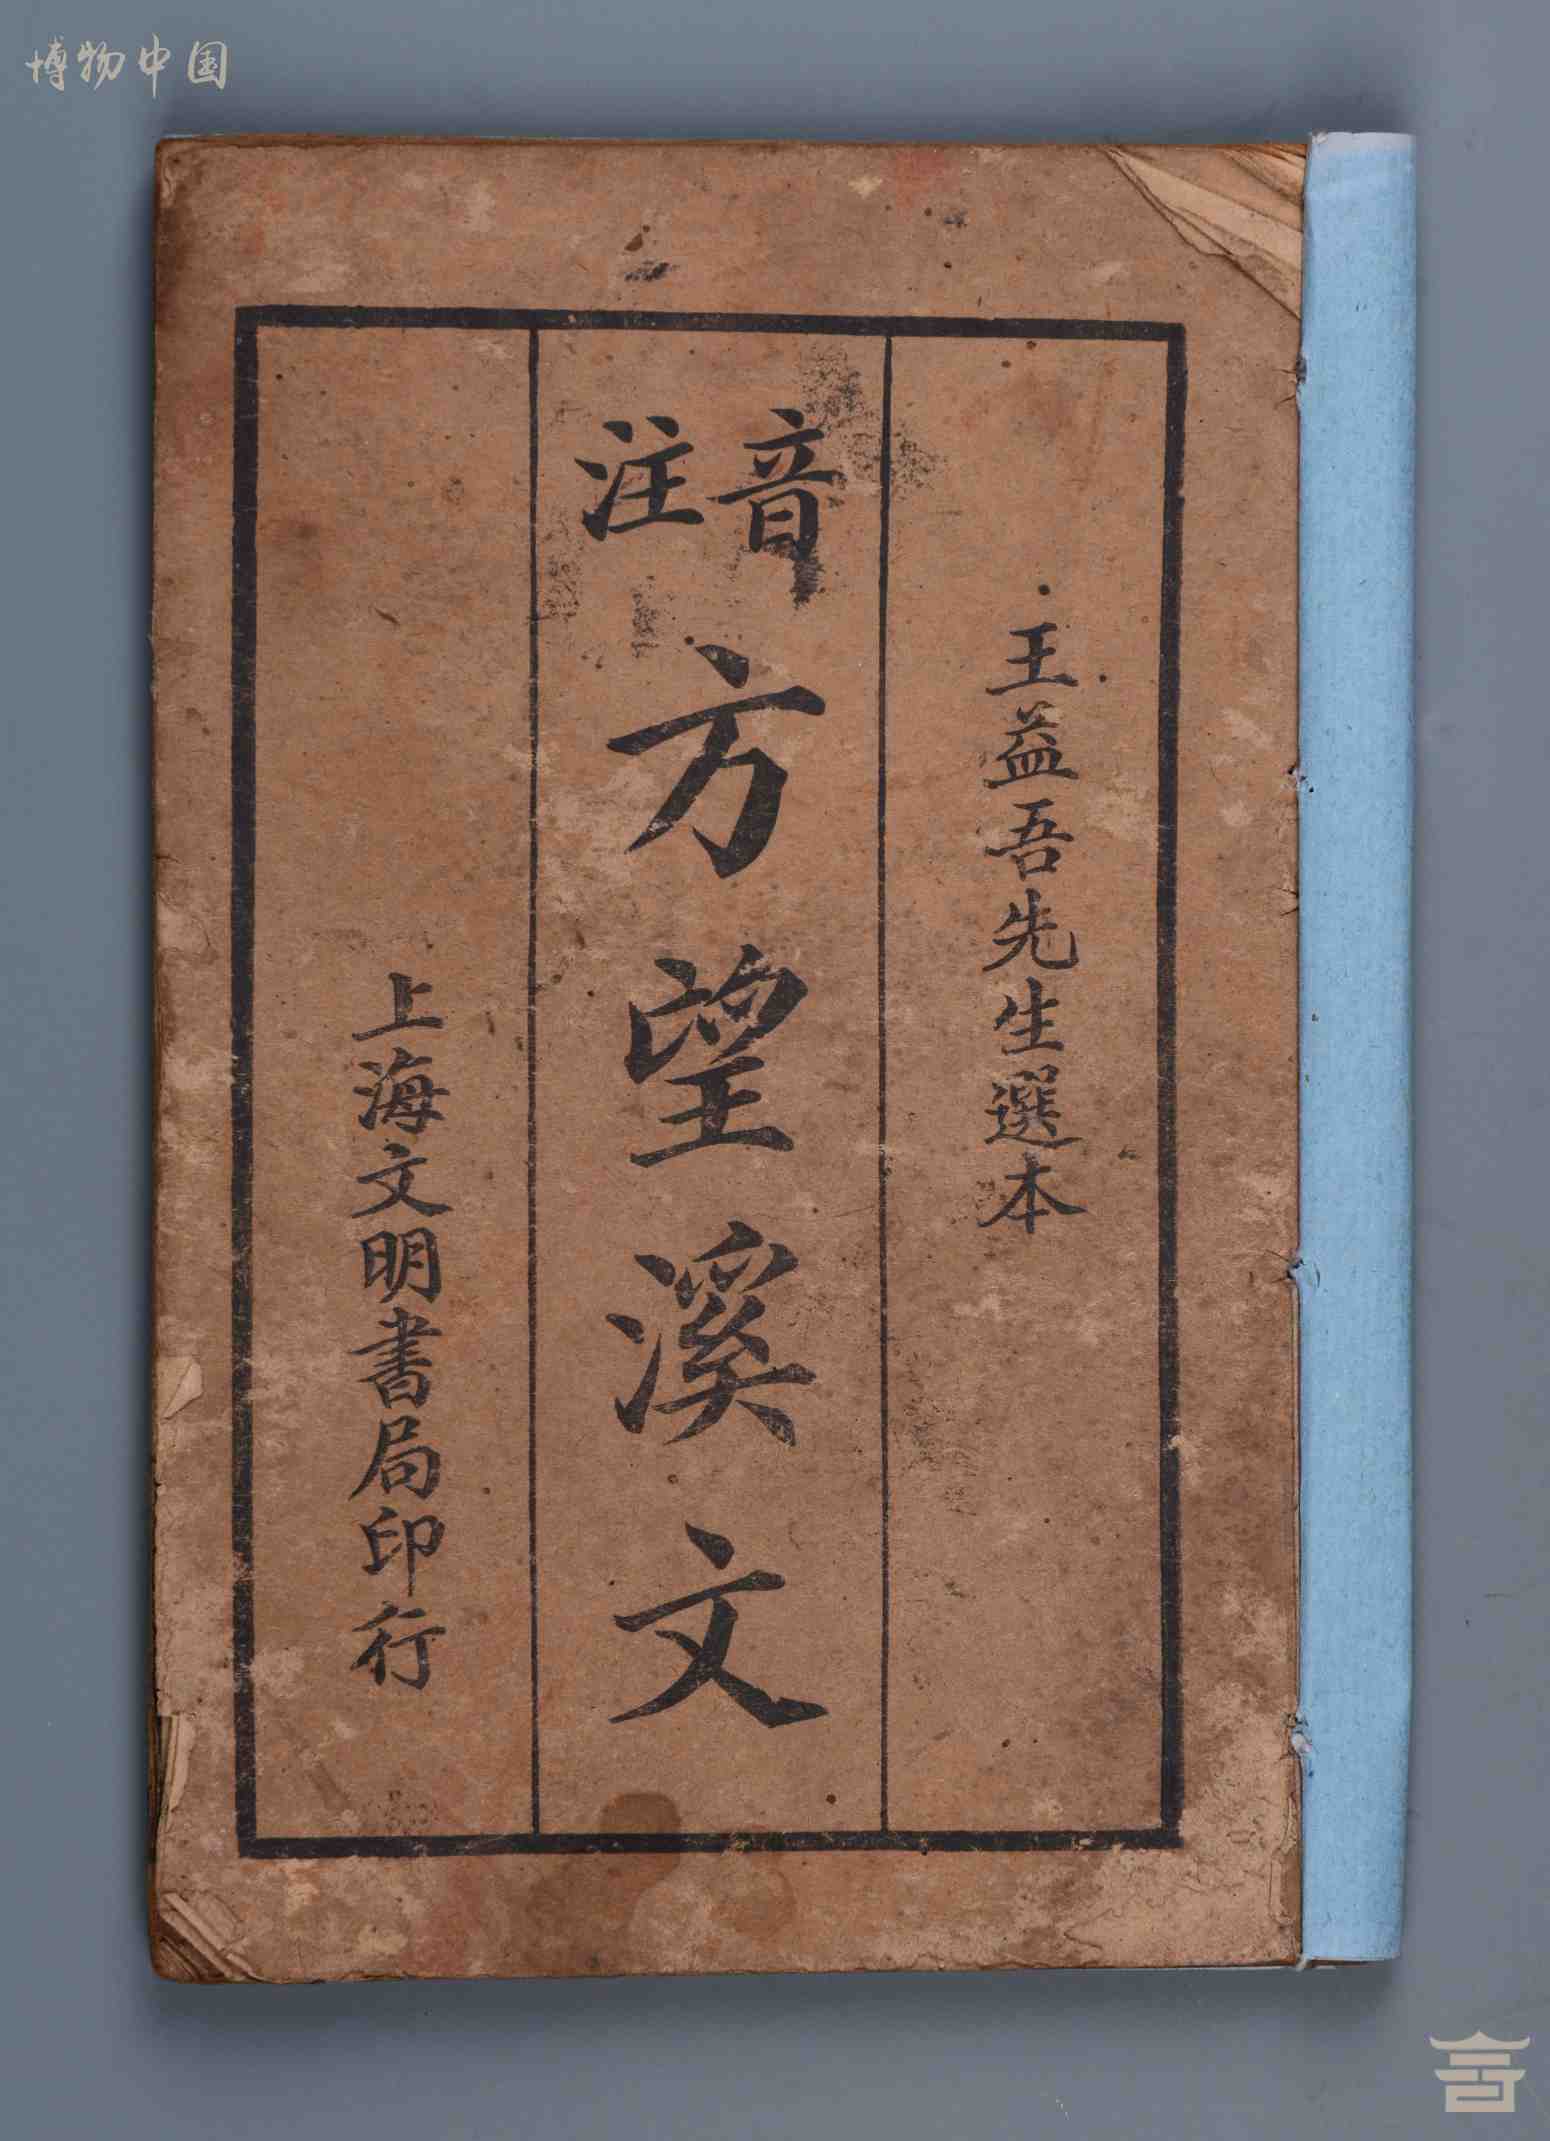 博物中国
王益吾先生選本
音注
方望溪文
上海文明書局印行